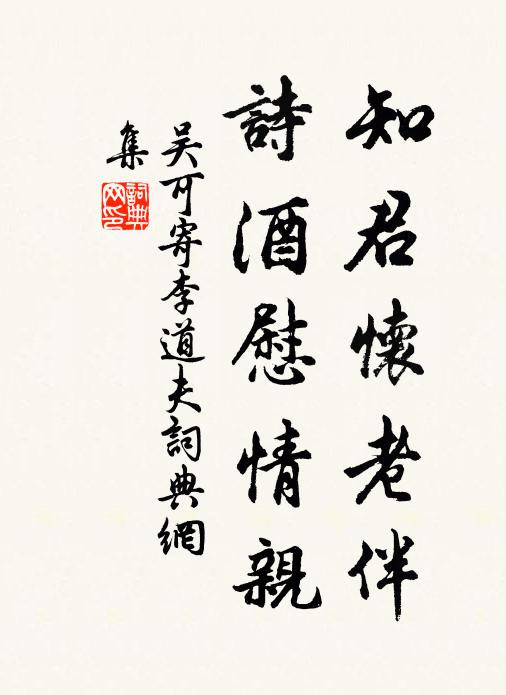 知君懷老伴
詩酒慰情親
吴可寄李道夫詞典網
集
詞典
网印